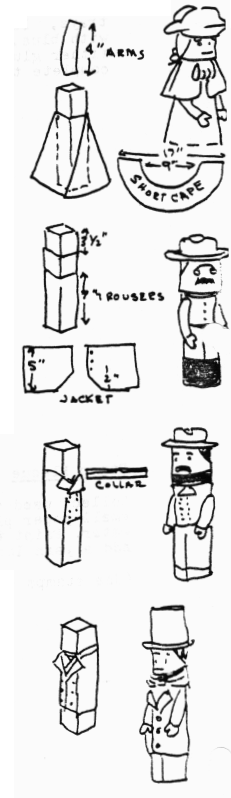 4" ARMS
17"
9"
SHORT CAPE
½"
TROUSERS
5"
½"
JACKET
COLLAR